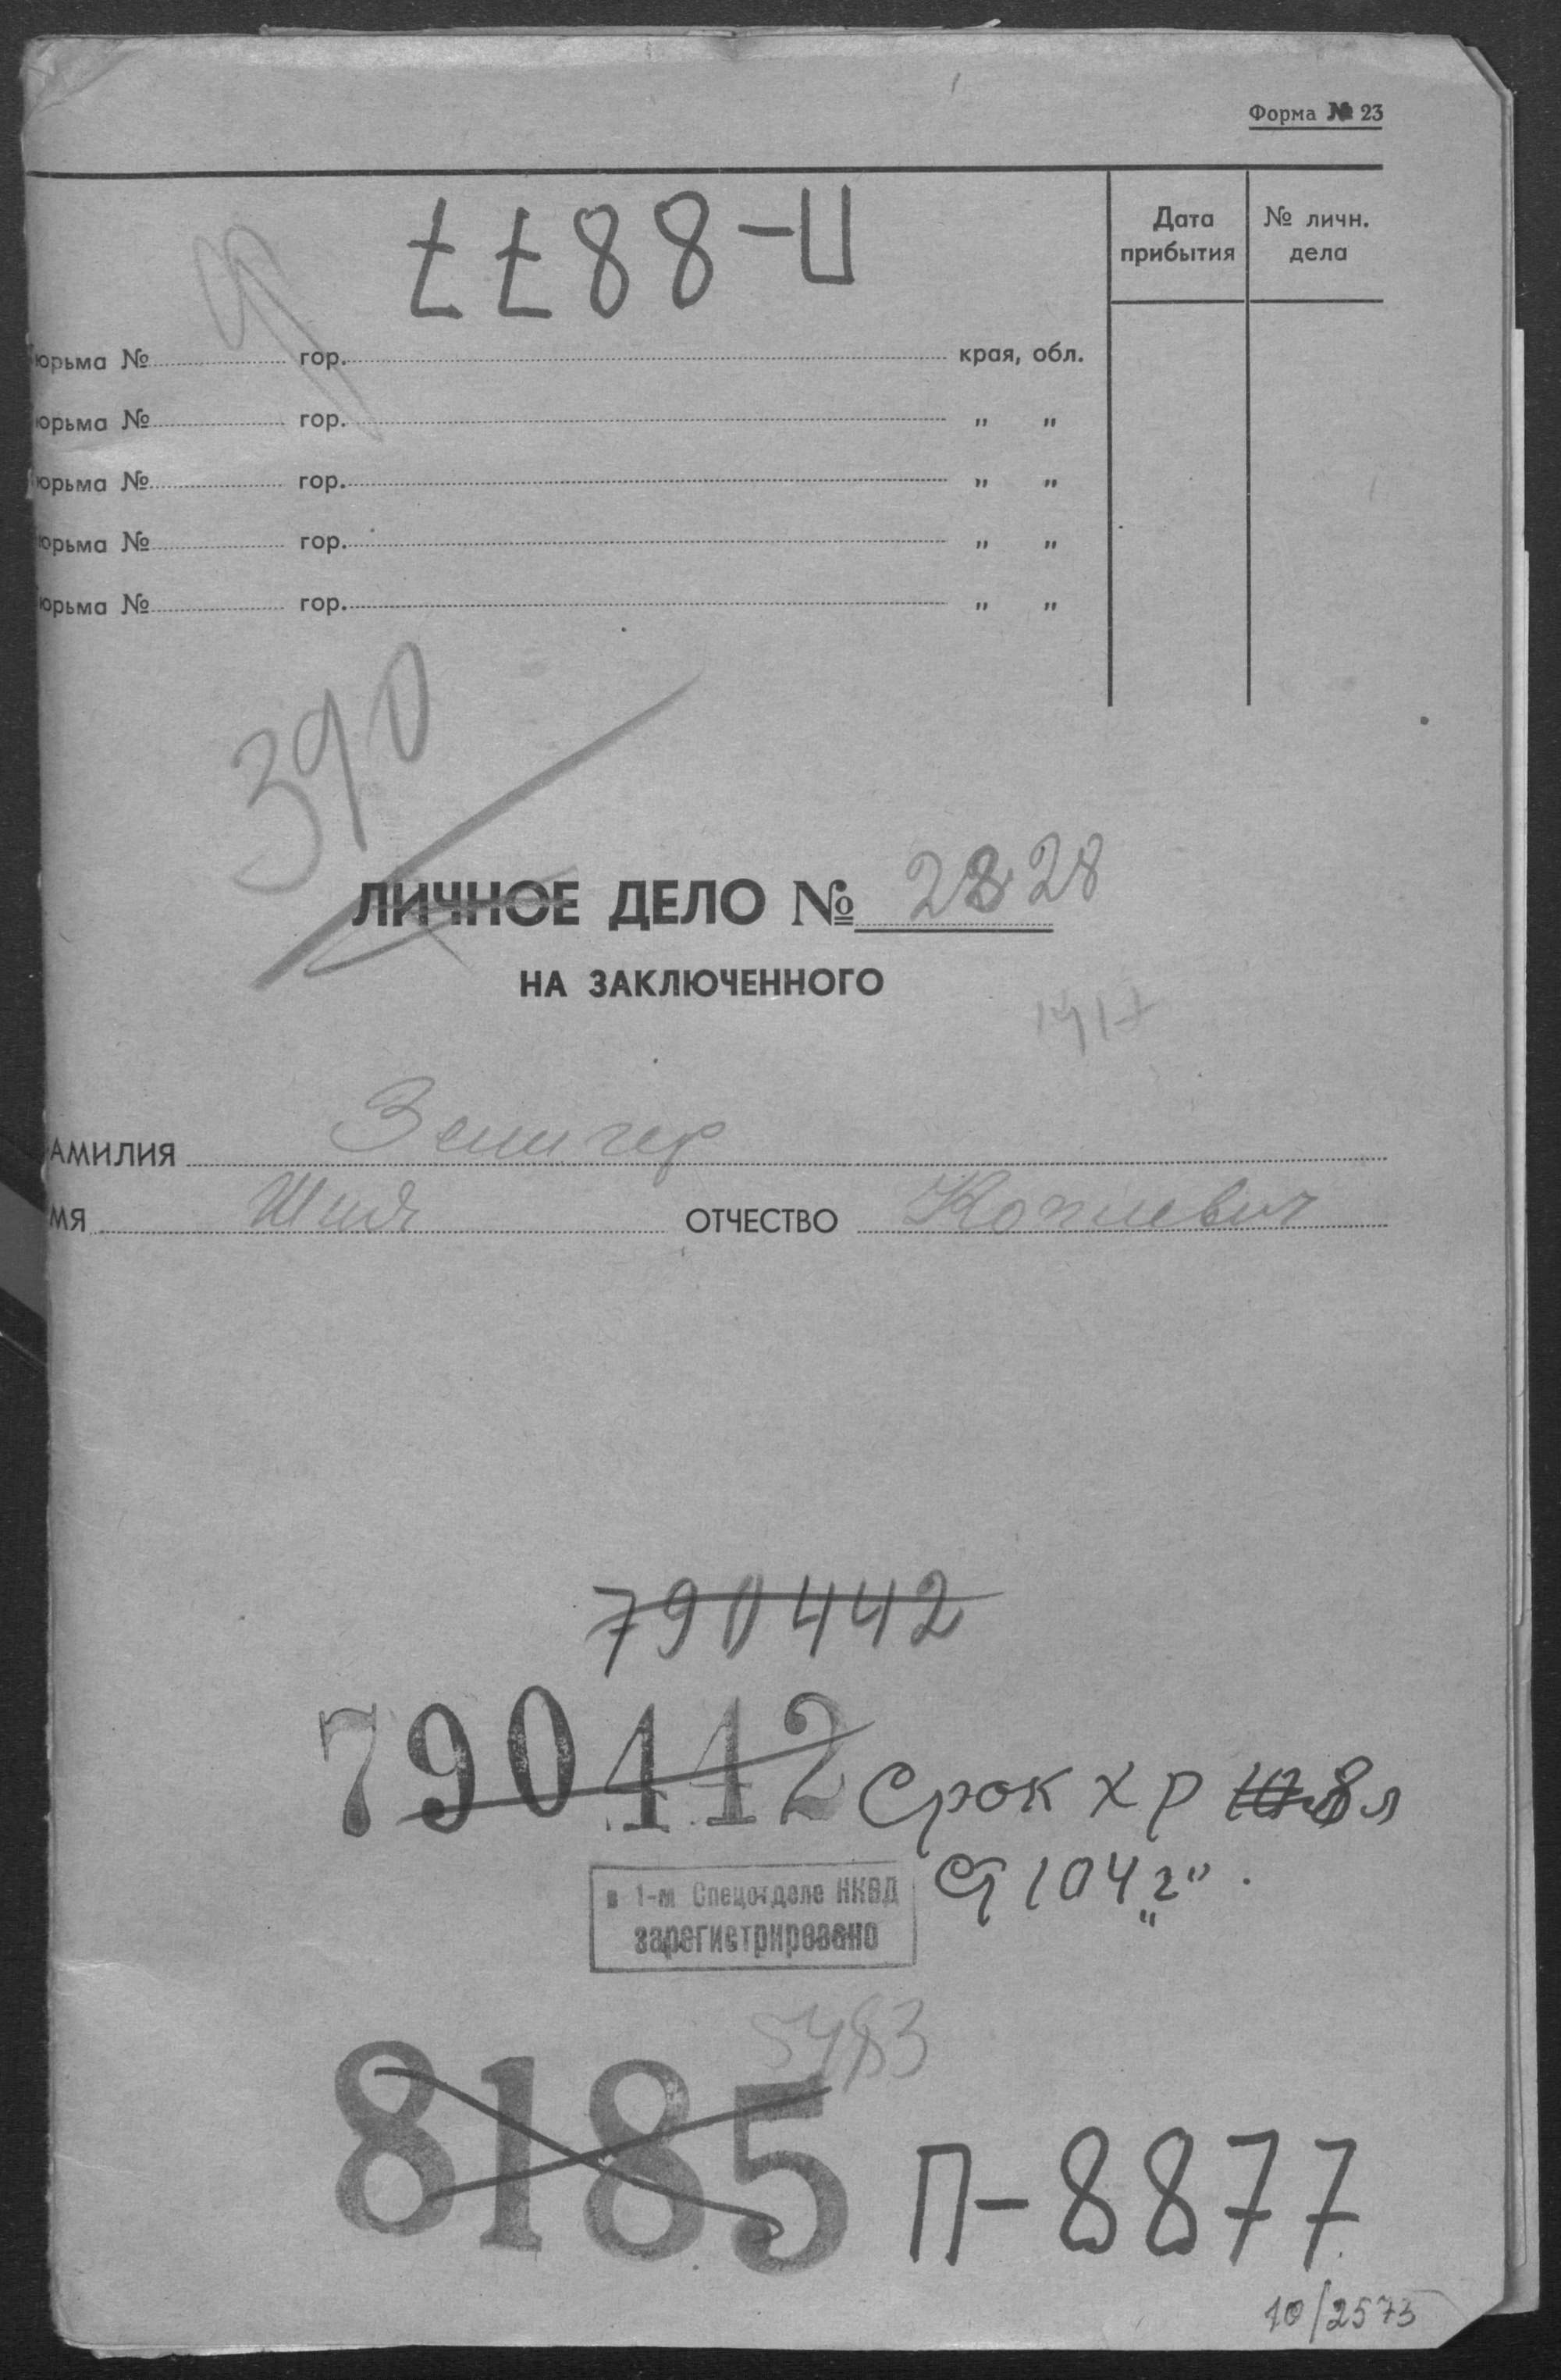 Форма № 23
П-8877
Дата прибытия
№ личн. дела
юрьма № гор. края, обл.
юрьма № гор. " "
юрьма № гор. " "
юрьма № гор. " "
юрьма № гор. " "
390
ЛИЧНОЕ ДЕЛО № 2828
НА ЗАКЛЮЧЕННОГО
1917
АМИЛИЯ Зенигер
МЯ Шия ОТЧЕСТВО Копелевич
790442
790442
Срок хр 8 л
в 1-м Спецотделе НКВД
зарегистрировано
Ст 104 „г"
5483
8185
П-8877
10/2573